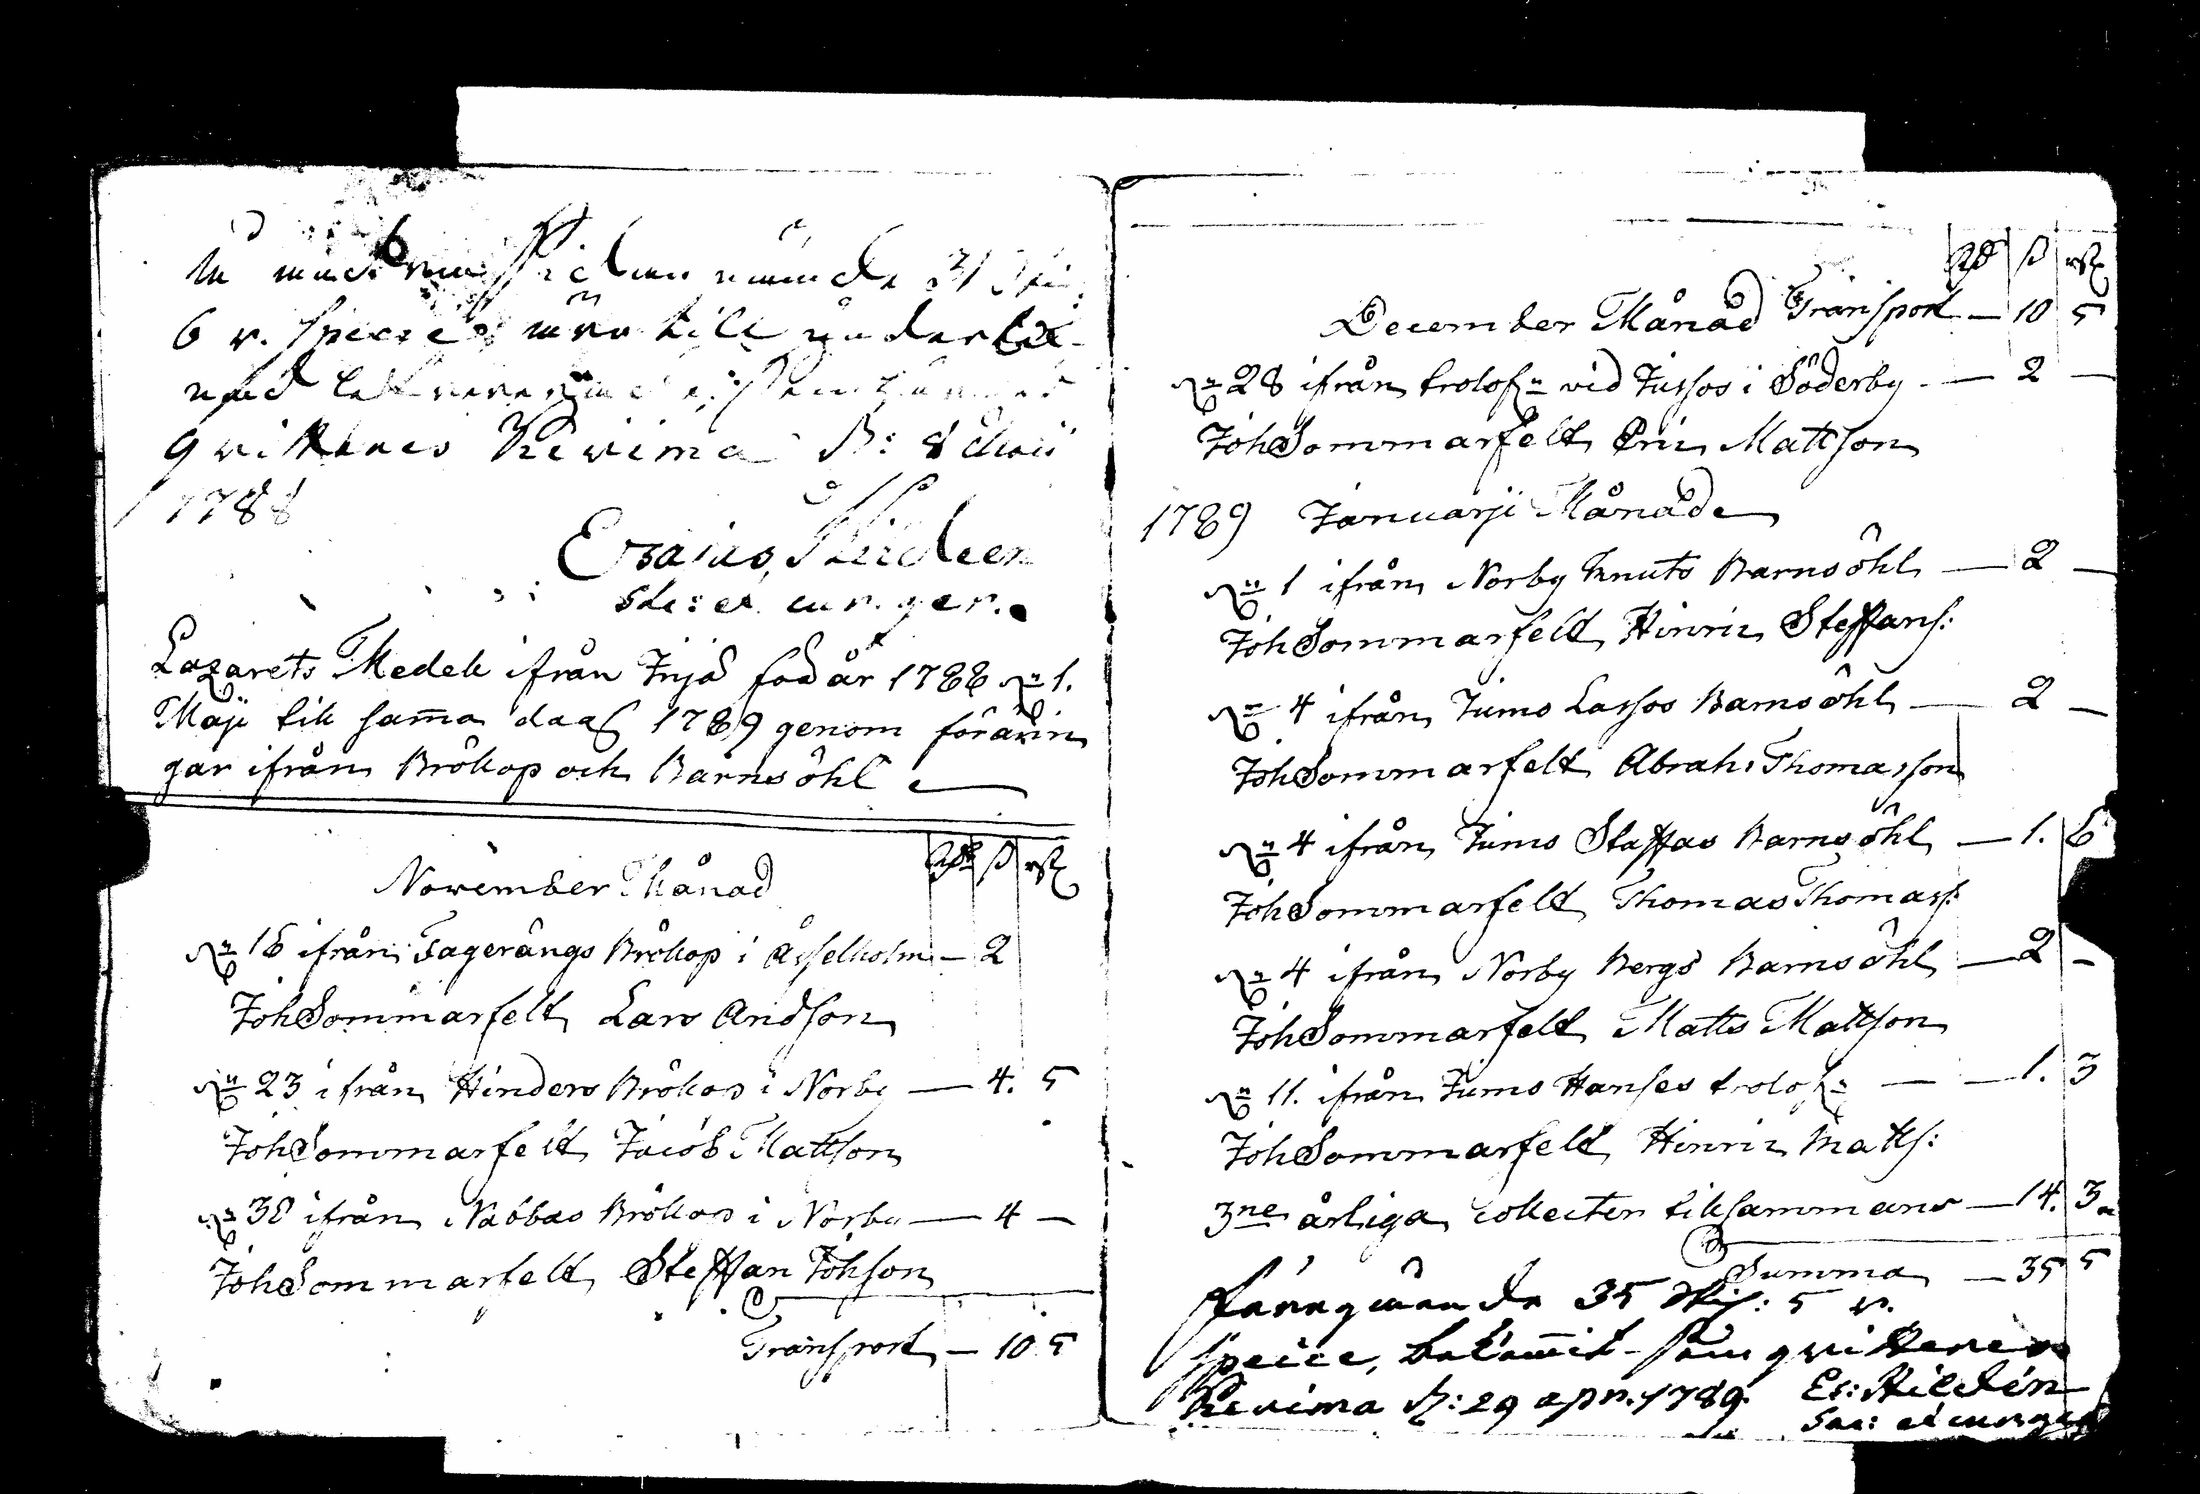 6 r. specie
qvitteres Kevima d: 8 Maii
1788
Esaias Hildeen
Sac: et cur. ger.
Lazarets Medel ifrån Iniö fod år 1788 dn 1.
Maji till sam̄a dag 1789 genom förärin
gar ifrån Brölop och Barnsöhl
Rd s rst
November Månad
dn 16 ifrån Fagerångs Brölop i Åsselholm — 2
Joh Sommarfelt Lars Andson
dn 23 ifrån Hinders Brölop i Norby — 4. 5
Joh Sommarfelt Jacob Mattson
dn 30 ifrån Nabbas Brölop i Norby — 4 —
Joh Sommarfelt Steffan Johson
Transport — 10 5
Rd s rst
December Månad Transport — 10 5
dn 28 ifrån trolofn vid Jussos i Söderby — 2 —
Joh Sommarfelt Eric Mattson
1789 Januarji Månade
dn 1 ifrån Norby Knuts Barnsöhl — 2 —
Joh Sommarfelt Hinric Steffans:
dn 4 ifrån Jumo Lassos Barnsöhl — 2 —
Joh Sommarfelt Abrah: Thomasson
dn 4 ifrån Jumo Staffas Barnsöhl — 1. 6
Joh Sommarfelt Thomas Thomass:
dn 4 ifrån Norby Bergs Barnsöhl — 2 —
Joh Sommarfelt Matts Mattson
dn 11. ifrån Jumo Hanses trolofn — — 1. 3
Joh Sommarfelt Hinric Matts:
3ne årliga collecter tilsammans — 14. 3
Summa — 35 5
35 skis: 5 r.
specie, bekom̄it som qvitteres
Kevima d: 29 apr. 1789. Es: Hildén
Sac: et cur ger